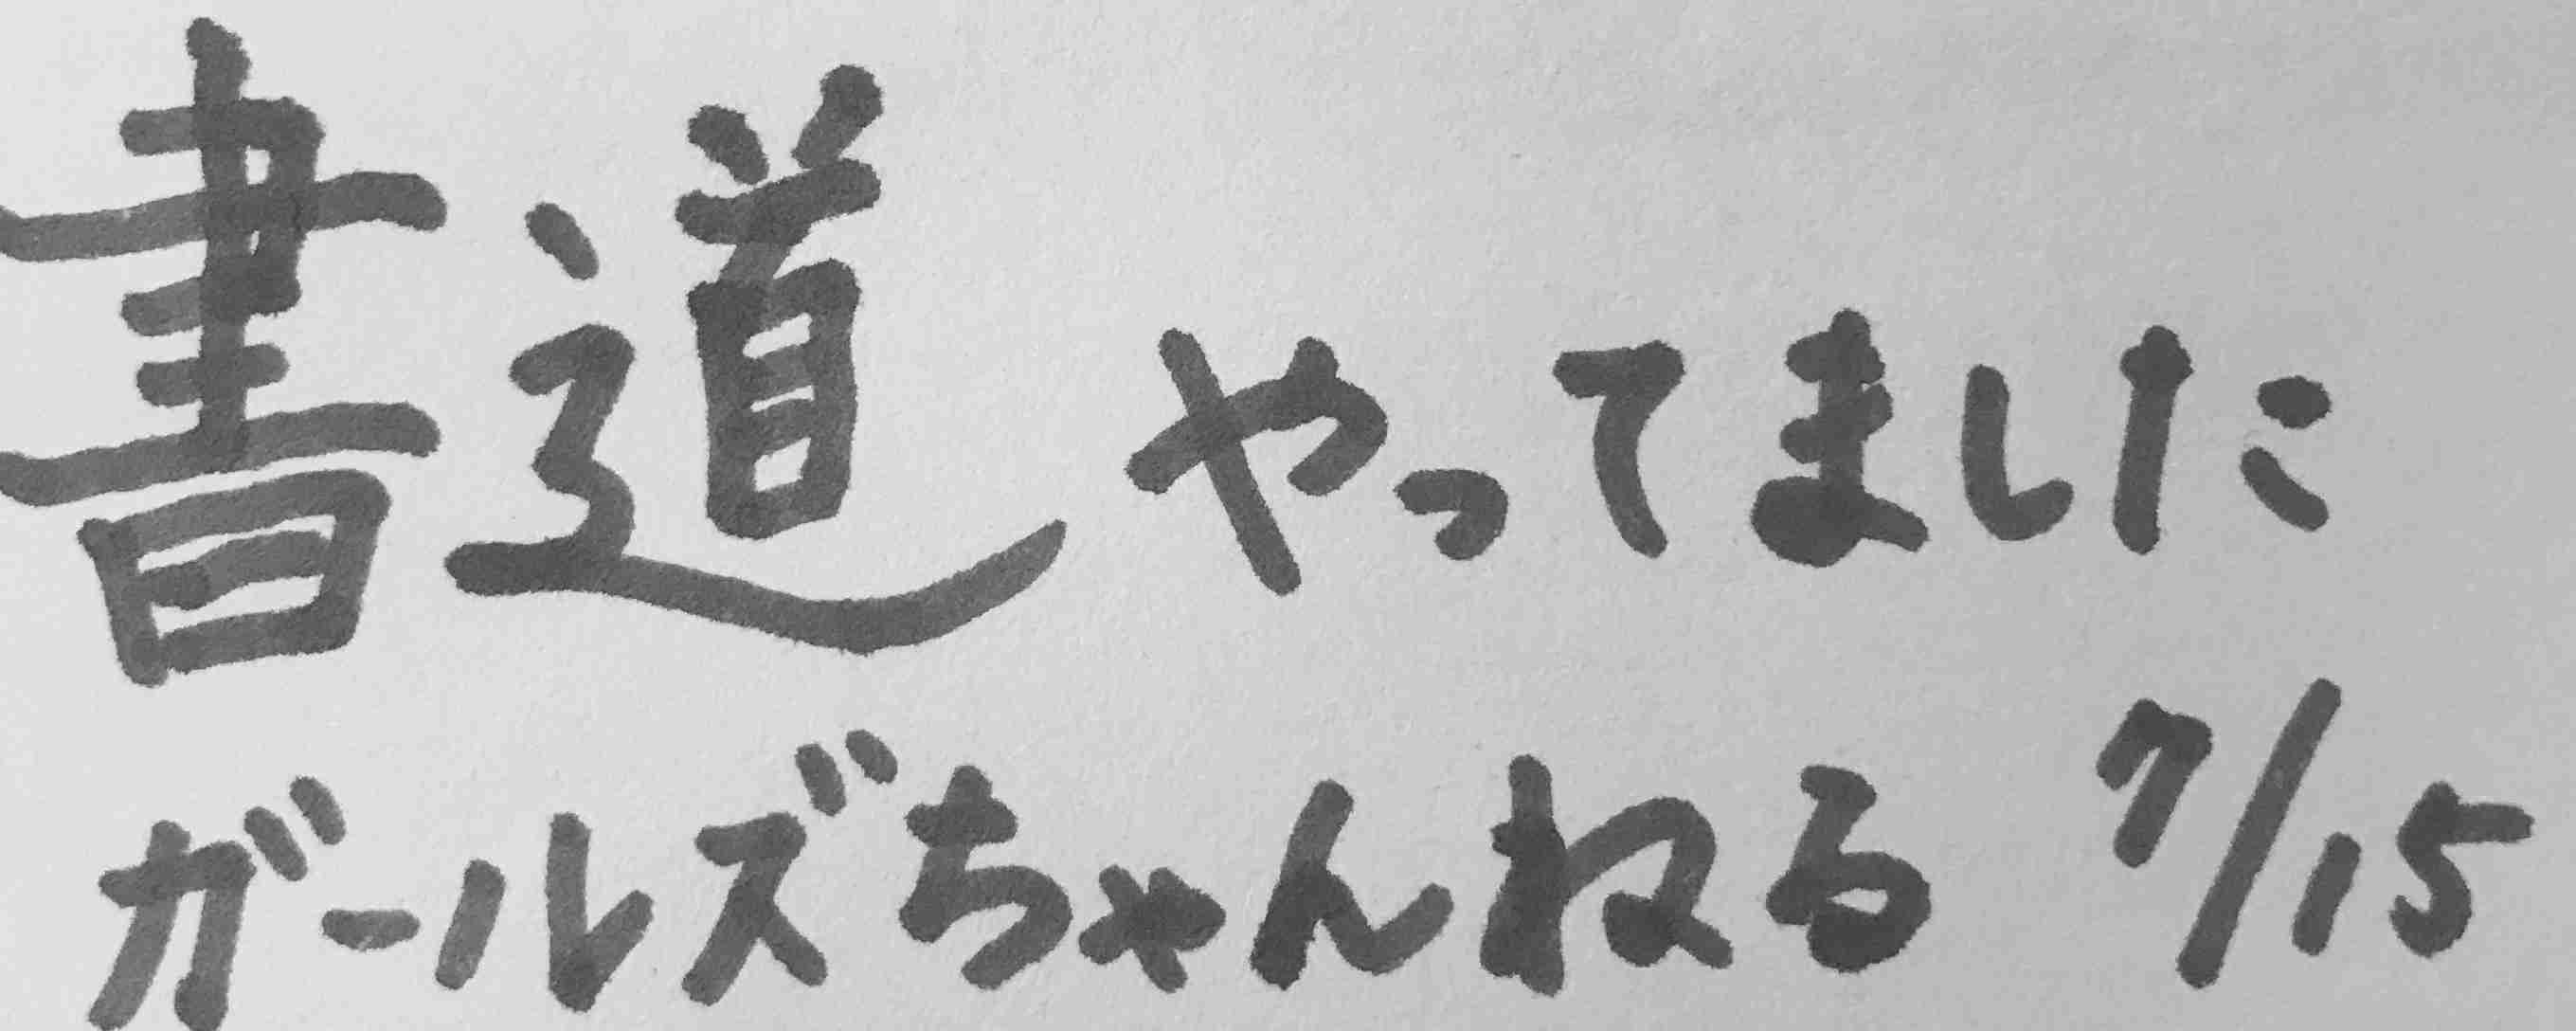 書道やってました
ガールズちゃんねる 7/15